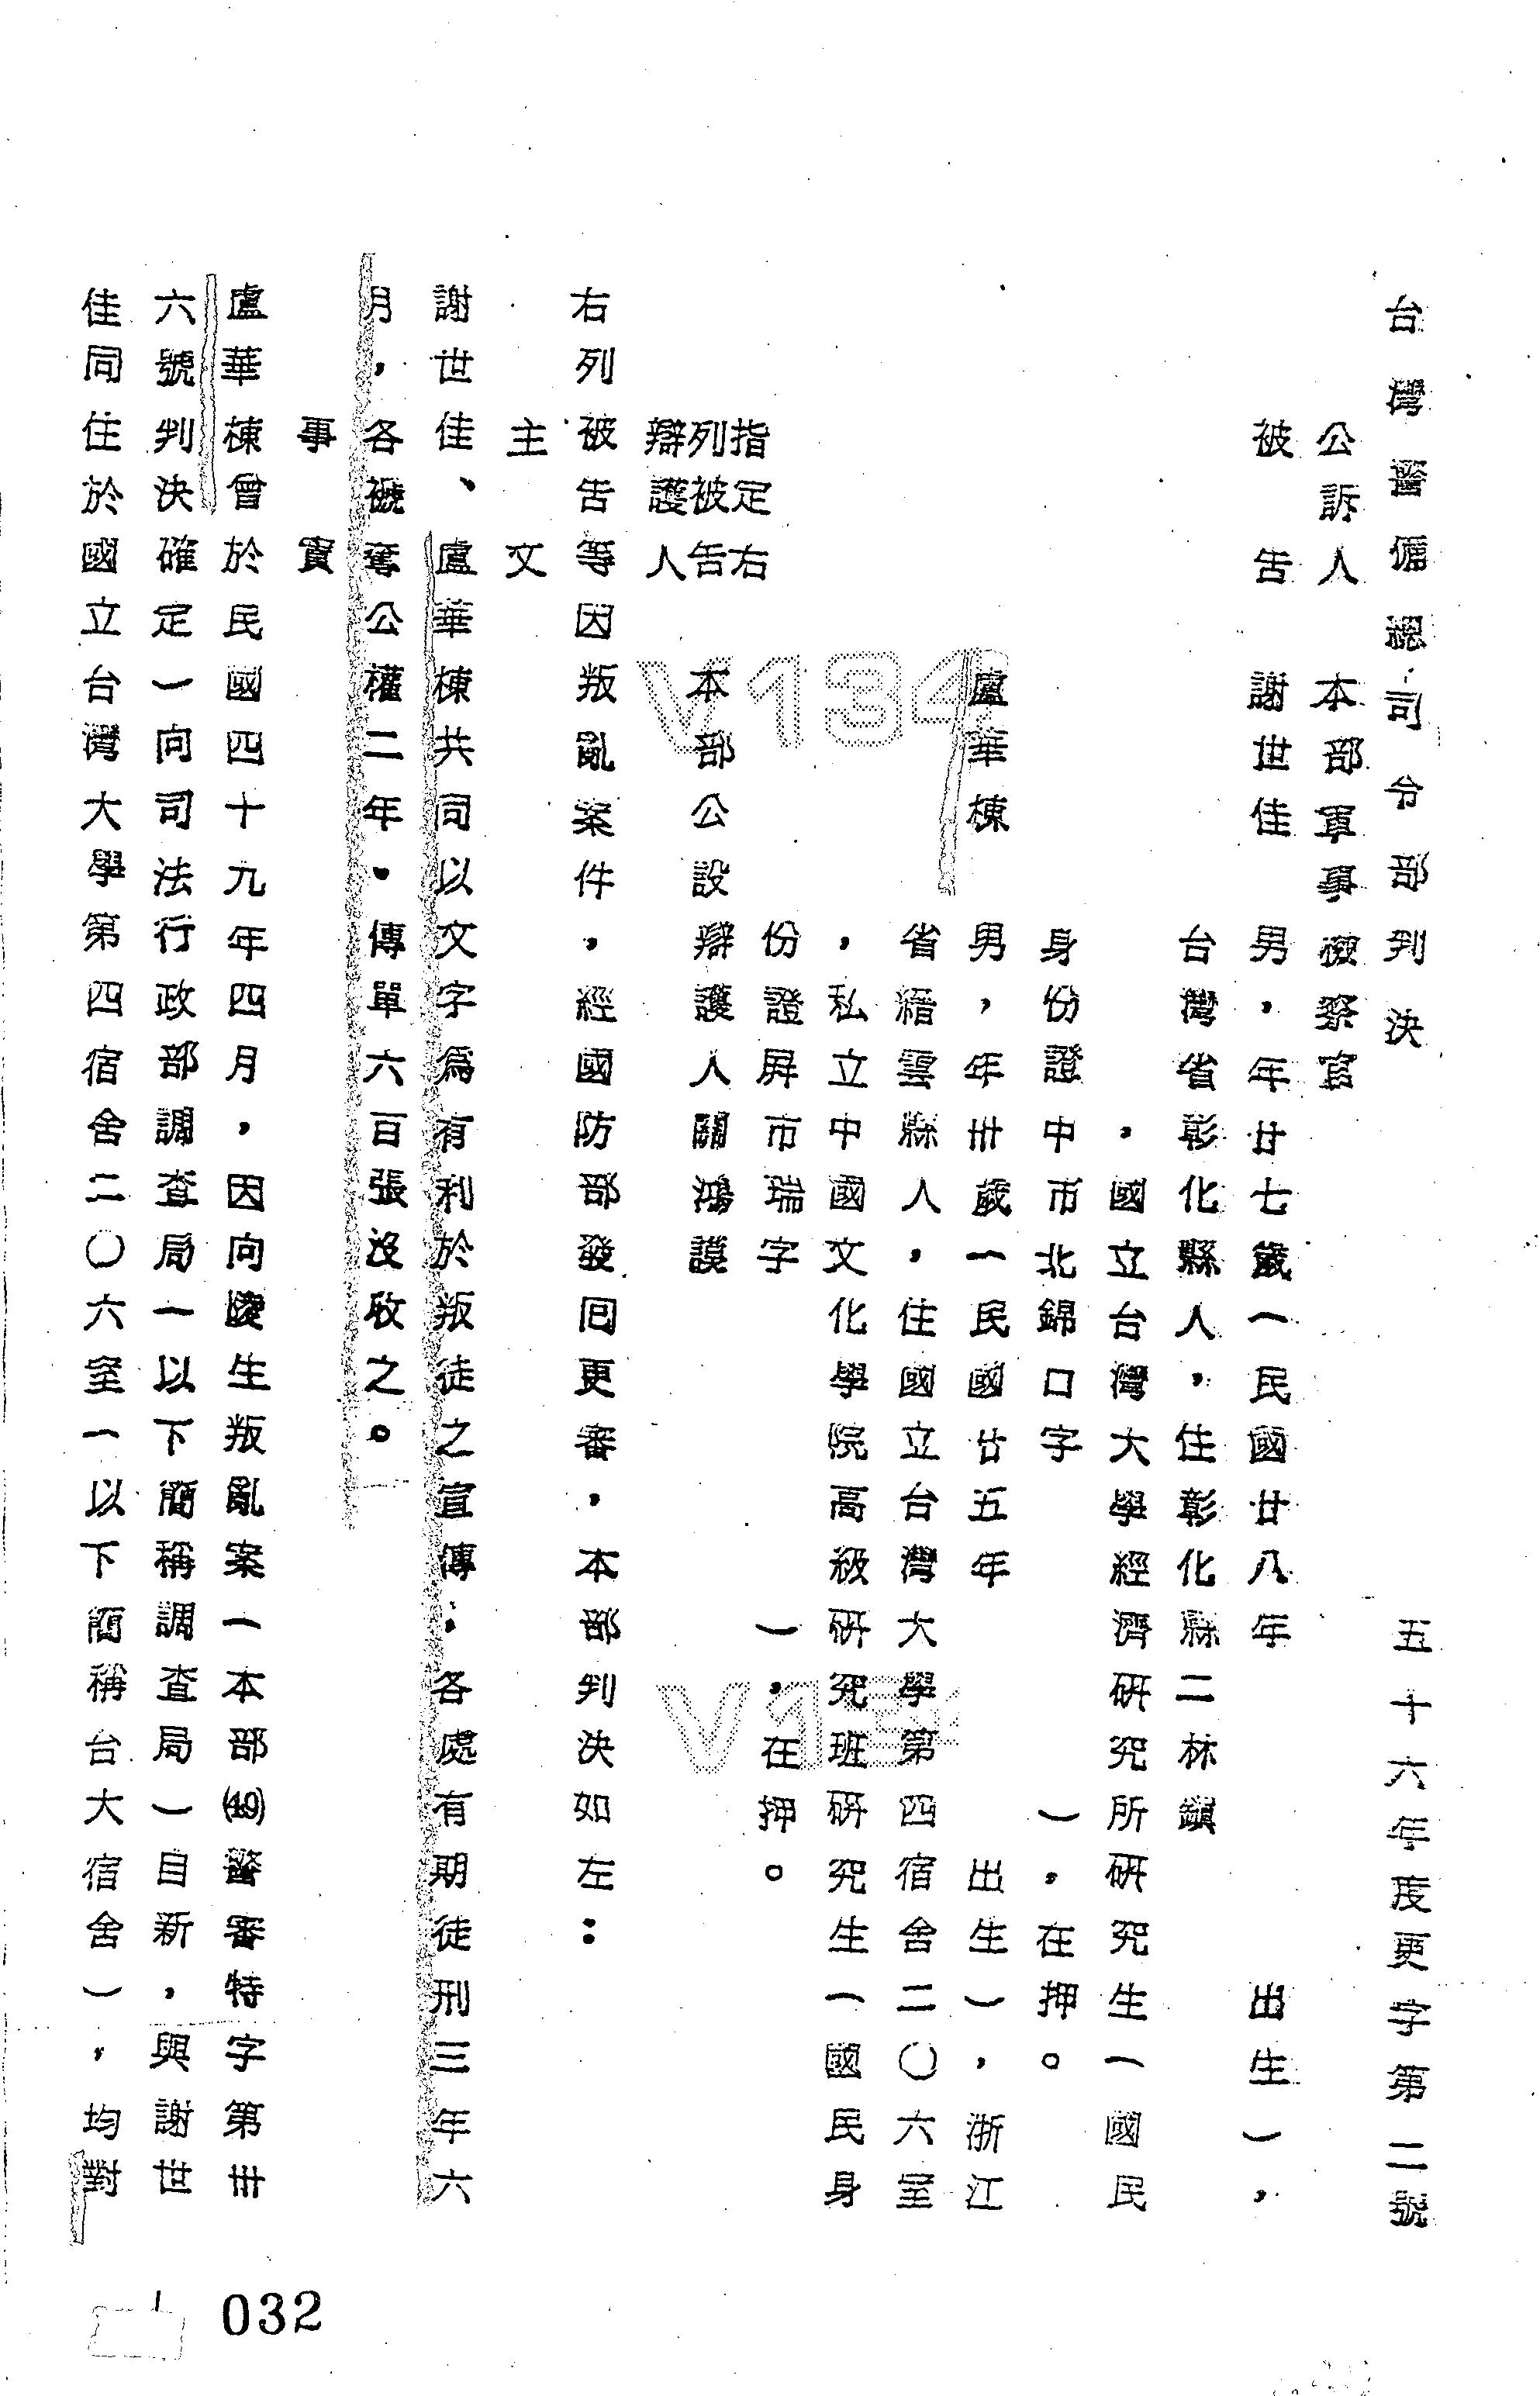 台灣警備總司令部判決　五十六年度更字第二號
公訴人　本部軍事檢察官
被告　謝世佳　男，年廿七歲（民國廿八年　出生），
台灣省彰化縣人，住彰化縣二林鎮
，國立台灣大學經濟研究所研究生（國民
身份證中市北錦口字　），在押。
盧華棟　男，年卅歲（民國廿五年　出生），浙江
省縉雲縣人，住國立台灣大學第四宿舍二〇六室
，私立中國文化學院高級研究班研究生（國民身
份證屏市瑞字　），在押。
指定右列被告辯護人　本部公設辯護人關鴻謨
右列被告等因叛亂案件，經國防部發回更審，本部判決如左：
主文
謝世佳、盧華棟共同以文字為有利於叛徒之宣傳，各處有期徒刑三年六
月，各褫奪公權二年。傳單六百張沒收之。
事實
盧華棟曾於民國四十九年四月，因向陵生叛亂案（本部(49)警審特字第卅
六號判決確定）向司法行政部調查局（以下簡稱調查局）自新，與謝世
佳同住於國立台灣大學第四宿舍二〇六室（以下簡稱台大宿舍），均對
032